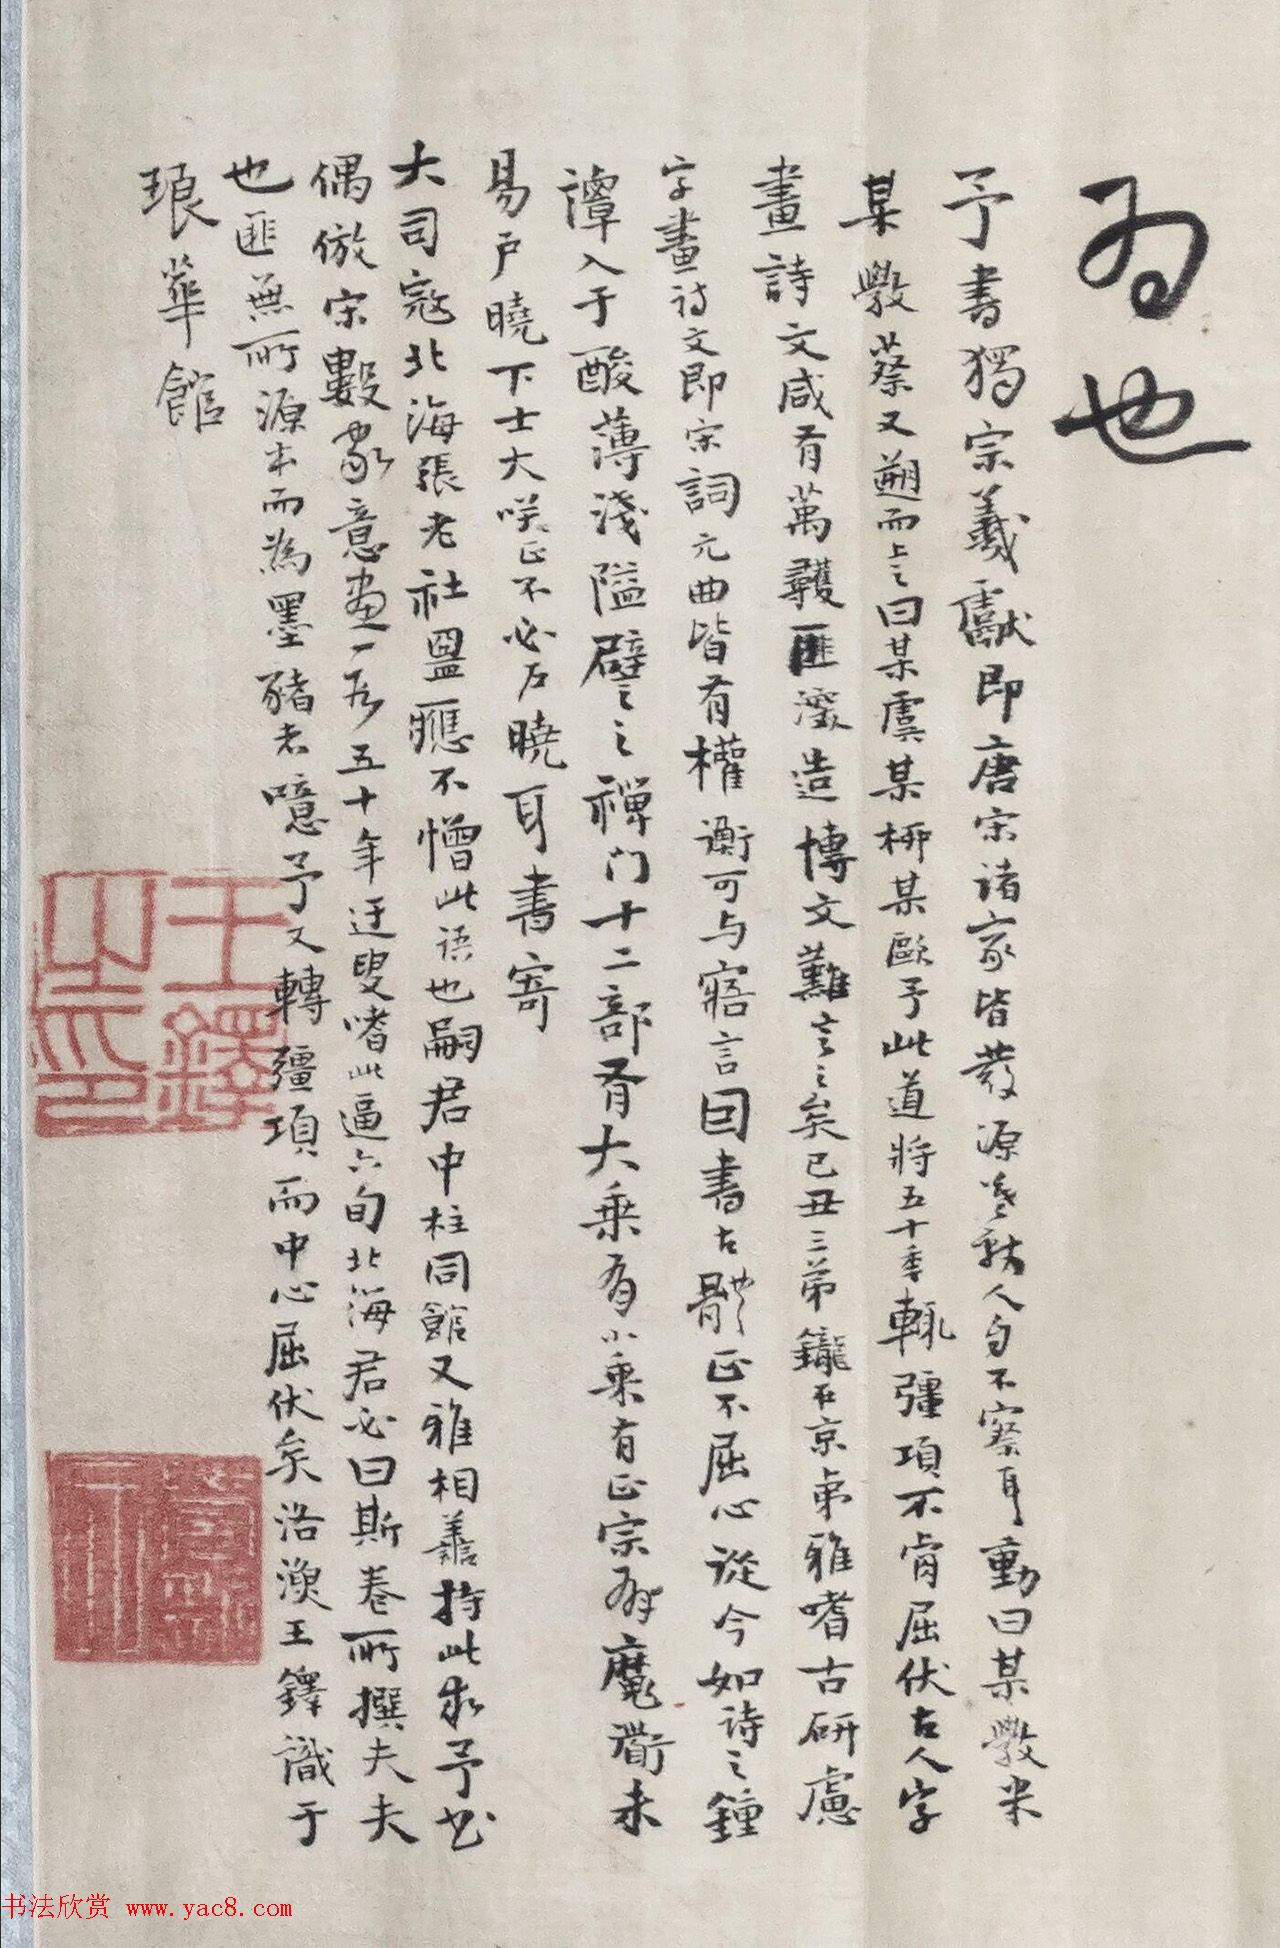 為也
予書獨宗羲獻即唐宋諸家皆發源羲獻人自不察耳動曰某學米
某學蔡又溯而上之曰某虞某柳某歐予此道將五十季輒彊項不肯屈伏古人字
畫詩文咸有萬彟匪濫造博文難言之矣己丑三弟鑨在京弟雅嗜古研慮
字畫詩文即宋詞元曲皆有權衡可与寤言曰書古體也正不屈心從今如詩之鍾
譚入于酸薄淺隘譬之禪门十二部有大乘有小乘有正宗有魔衜未
易户曉下士大咲正不必户曉耳書寄
大司寇北海張老社盟應不憎此语也嗣君中柱同館又雅相善持此求予书
偶倣宋數家意畫一段五十年迂叟嗜此逼六旬北海君必曰斯卷所撰夫夫
也匪無所源本而為墨豬者噫予又轉彊項而中心屈伏矣洛漁王鐸識于
琅華館
王鐸之印
书法欣赏 www.yac8.com